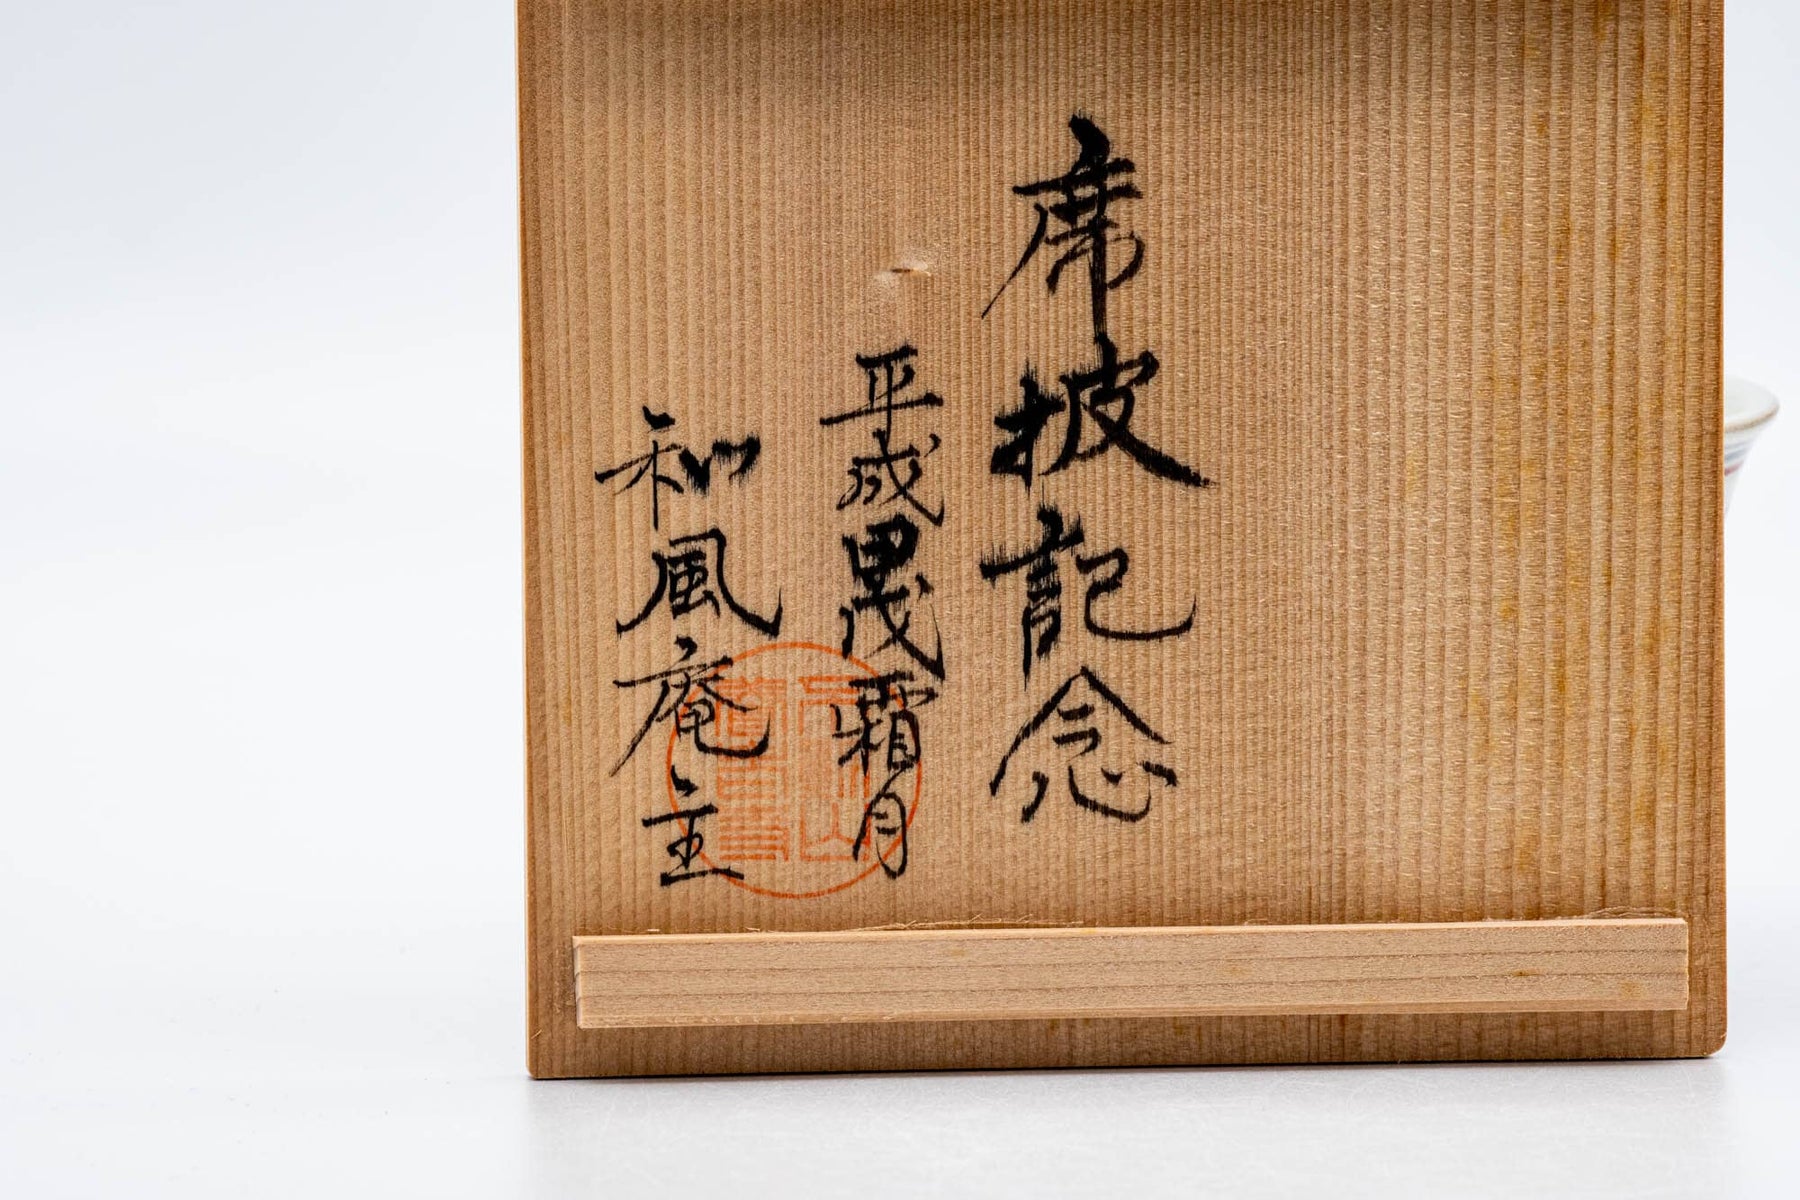 席披記念
平成甲戌霜月
和風庵主